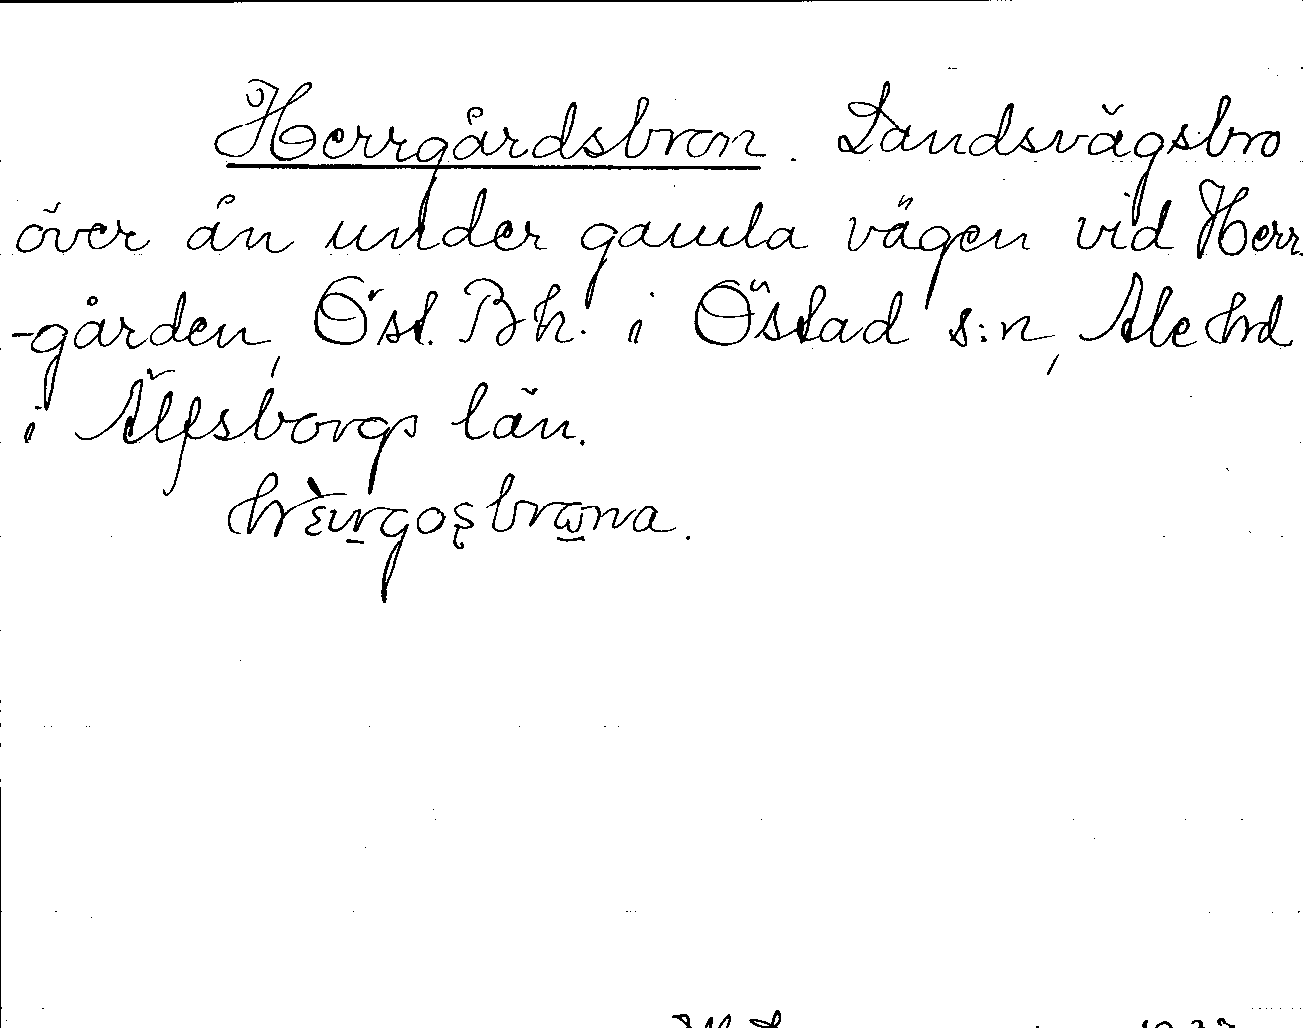 Herrgårdsbron. Landsvägsbro
över ån under gamla vägen vid Herr
-gården, Öst. Bh. i Östad s:n, Ale hd
i Älfsborgs län.